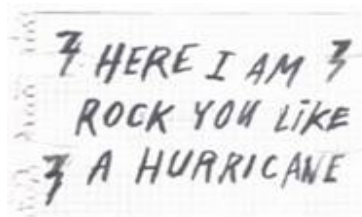 HERE I AM
ROCK YOU LiKE
A HURRICANE